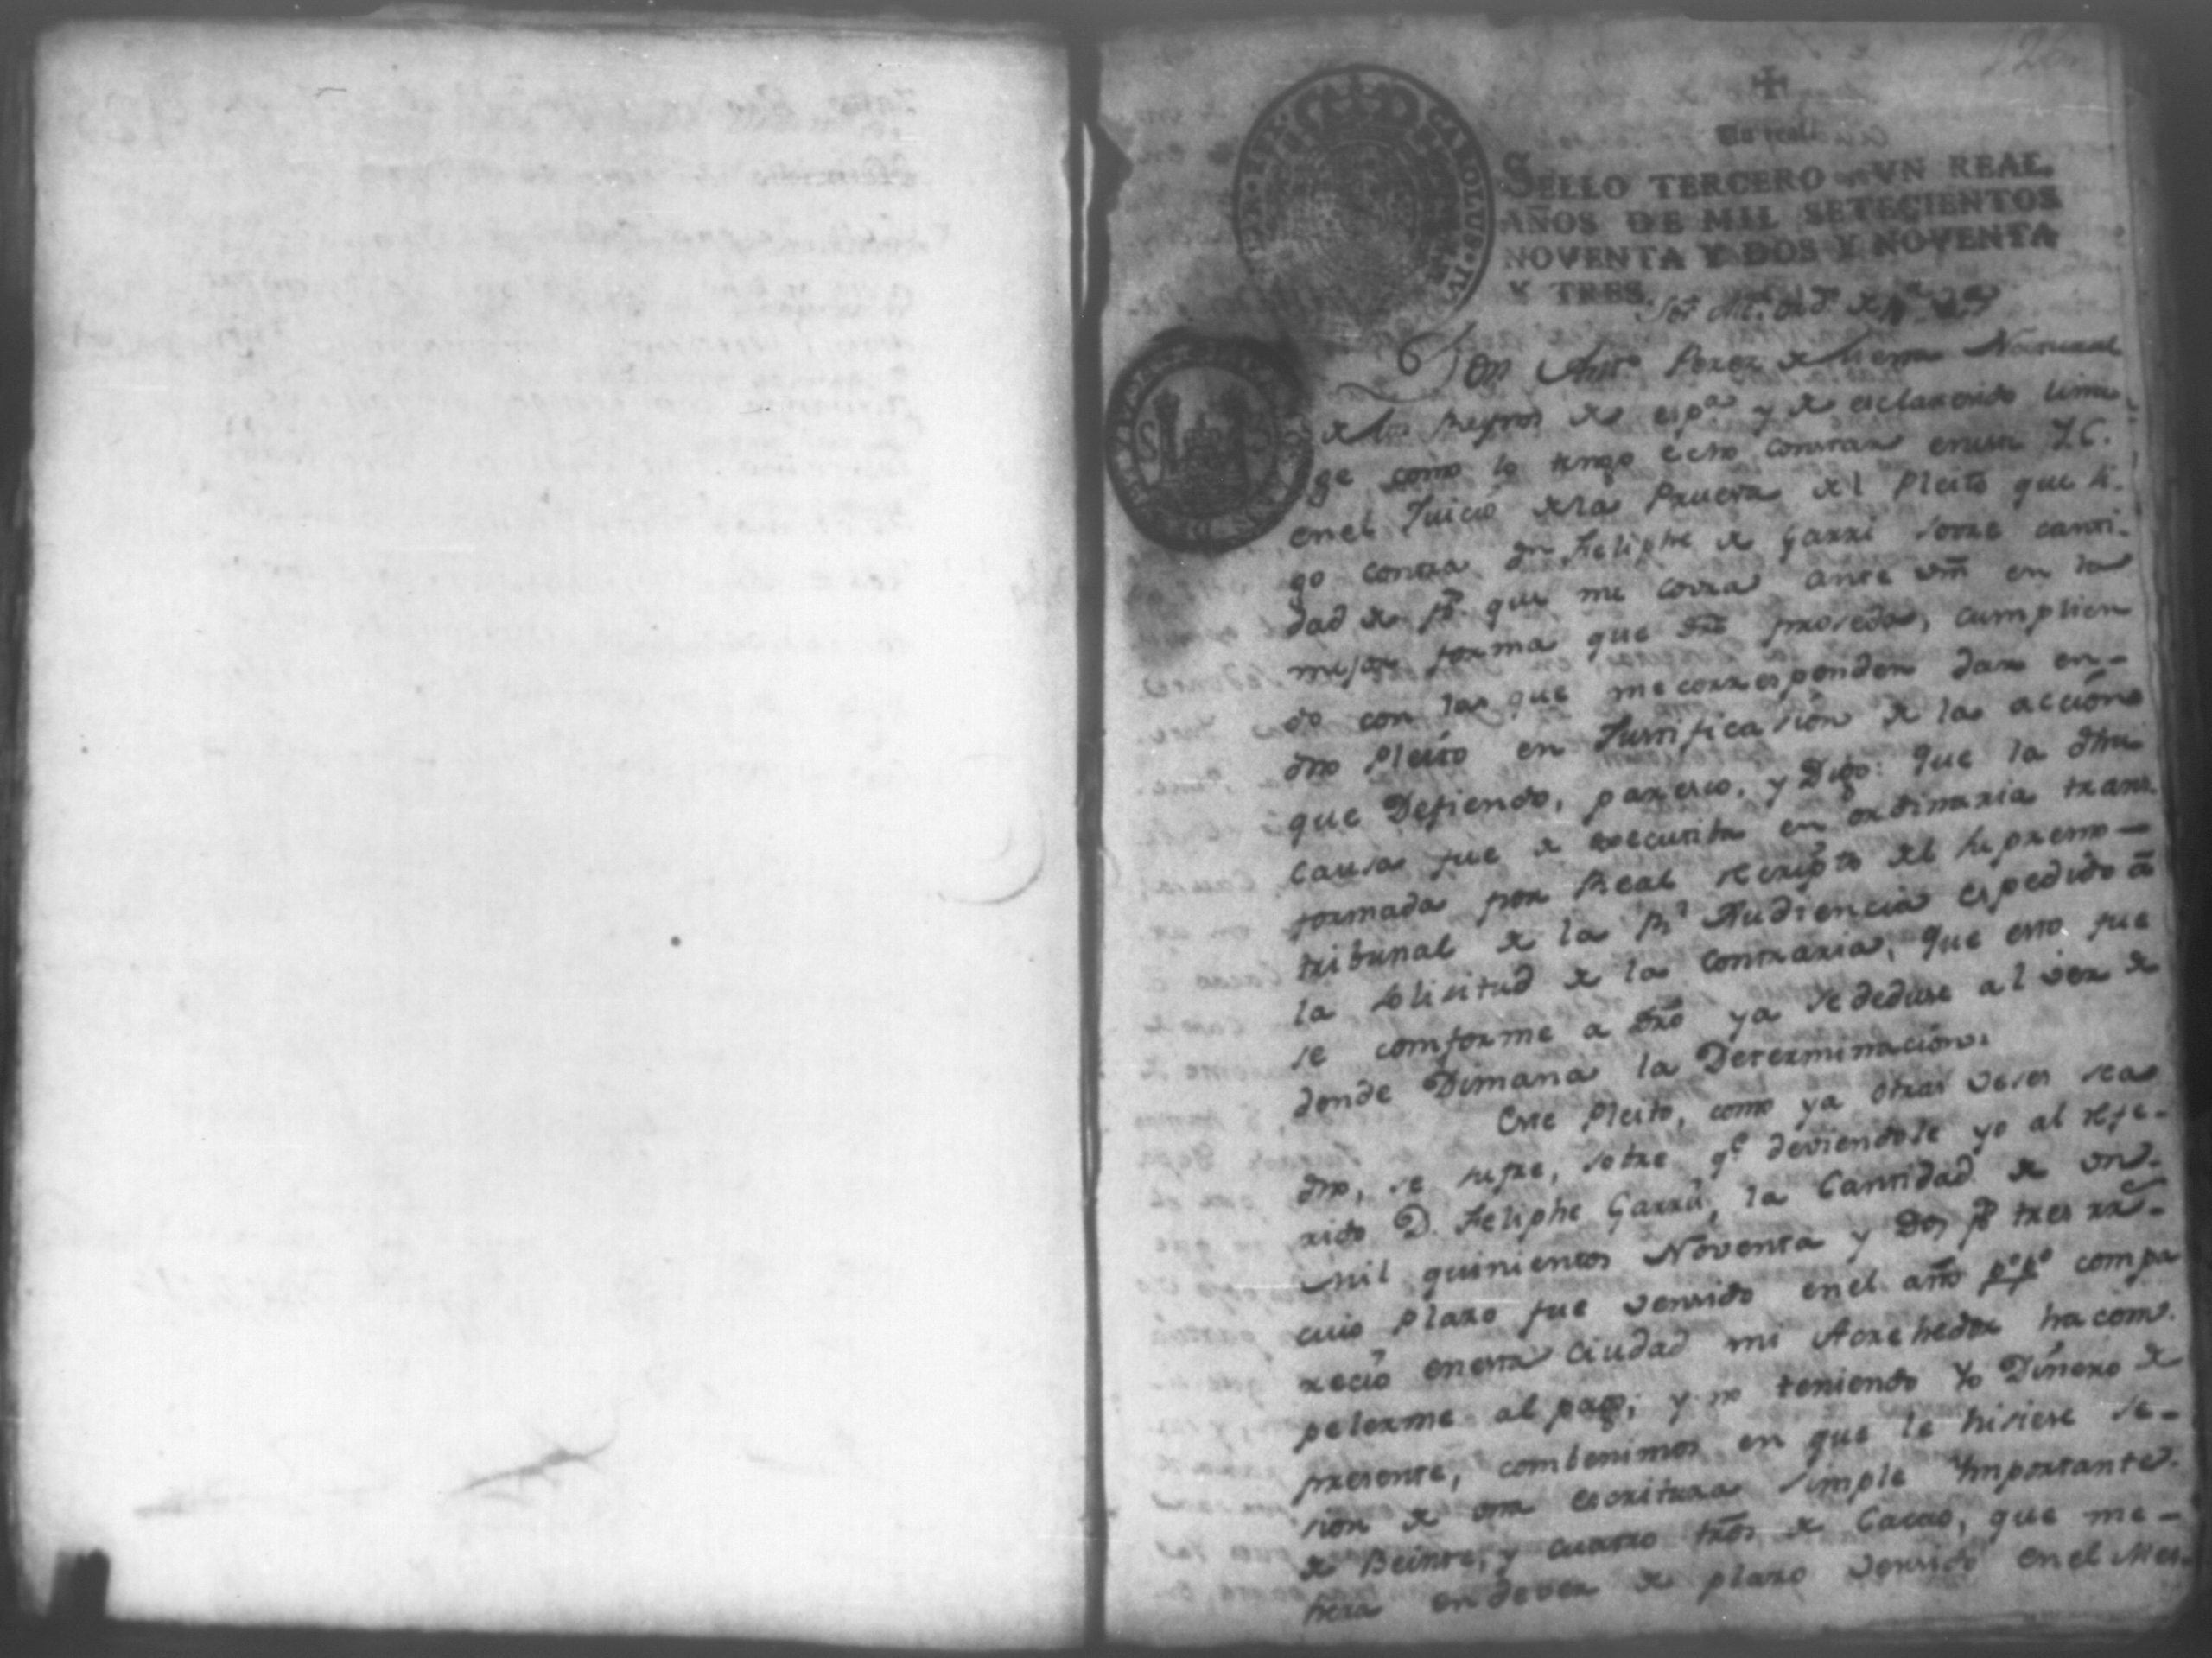 126
Un real
SELLO TERCERO VN REAL
AÑOS DE MIL SETECIENTOS
NOVENTA Y DOS Y NOVENTA
Y TRES.
CAROLUS IV
Don Anto Perez de Natural
de los Reynos de espa y de esclarecido lina
ge como lo tengo echo constar enun I.C.
enel Juicio dela Prueva del Pleito que si-
go contra dn Feliphe de Garri sovre canti-
dad de ps. que me covra ante vm en la
mejor forma que dro proseda, cumplien
do con las que me corresponden dar en-
dho Pleito en Justificasion de la acción
que Defiendo, paresco, y Digo: Que la dha
causa fue de executiba en ordinaria trans-
formada por Real rescripto del supremo-
tribunal de la Rl Audiencia espedido â
la solisitud de la contraria, que esto fue
se comforme a dro ya se deduse al ver de
donde Dimana la Determinación.
Este Pleito, como ya otras veses sea
dho, se sufre, sobre qe. deviendole yo al refe-
rido D. Feliphe Garri, la Cantidad de un-
mil quinientos Noventa y Dos ps tres rrs-
cuio Plazo fue vensido enel año po.po. compa
reció enesta Ciudad mi Acrehedor ha com-
pelerme al pago; y no teniendo Yo Dinero de
presente, combenimos en que le hisiese se-
sion de una escritura simple Importante-
de Beinte, y cuatro de Cacao, que me-
hera en dever de plazo vensido enel Mes-